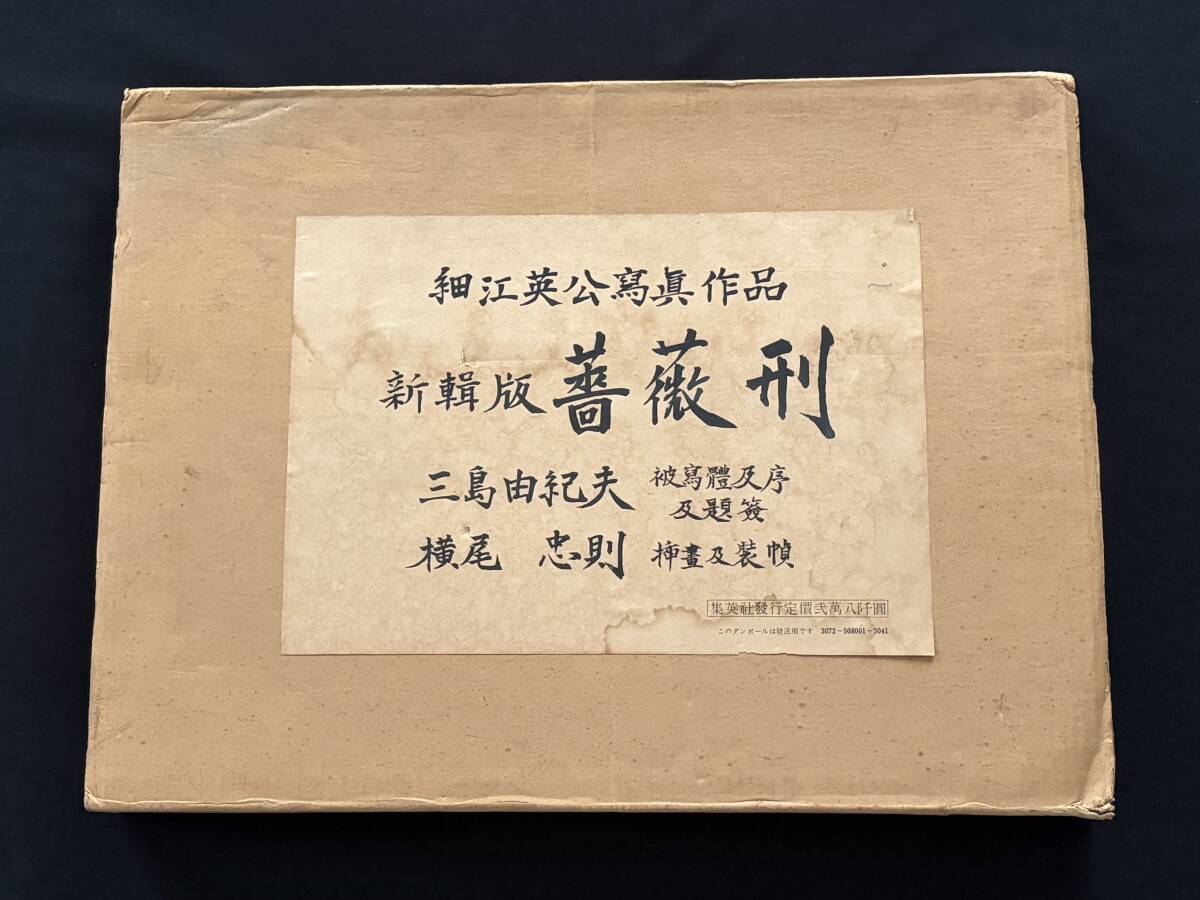 細江英公寫眞作品
新輯版 薔薇刑
三島由紀夫 被寫體及序
及題簽
横尾 忠則 挿畫及装幀
集英社發行定價弐萬八阡圓
このダンボールは發送用です 3072-508001-3041